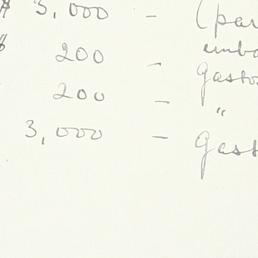 $ 3,000 – (par
$ 200 – emba
200 – gastos
3,000 – " gast